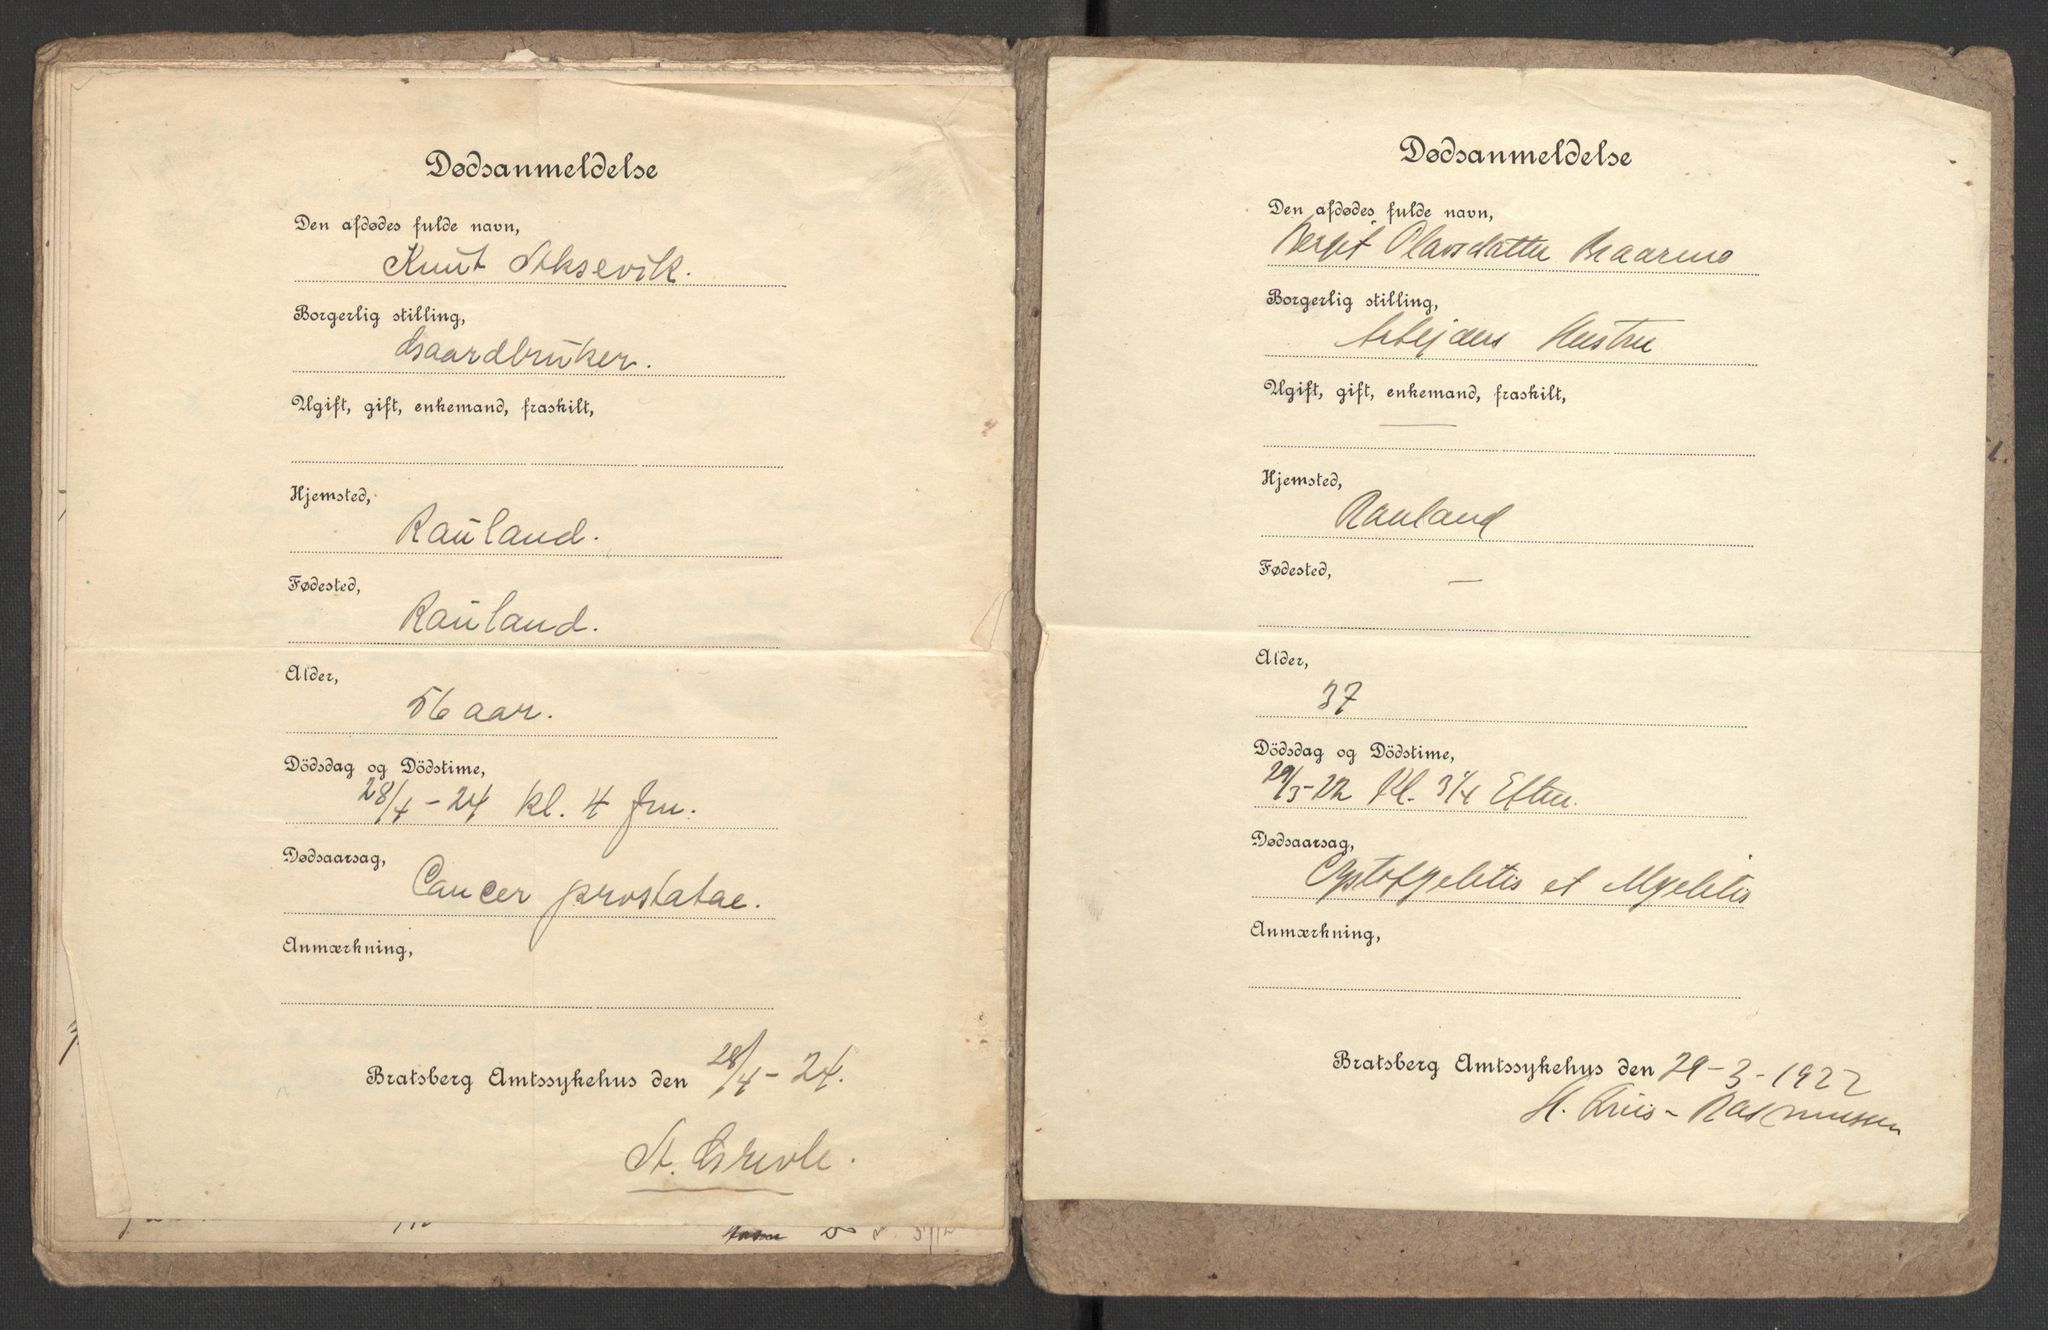 Dødsanmeldelse
Den afdødes fulde navn,
Knut Aksevik.
Borgerlig stilling,
Gaardbruker.
Ugift, gift, enkemand, fraskilt,
Hjemsted,
Rauland.
Fødested,
Rauland.
Alder,
56 aar.
Dödsdag og Dödstime,
28/4 - 24 kl. 4 fm.
Dødsaarsag,
Cancer prostatae.
Anmærkning,
Bratsberg Amtssykehus den 28/4 - 24.
Dødsanmeldelse
Den afdødes fulde navn,
Bergit Olavsdatter
Borgerlig stilling,
Arbejders Hustru
Ugift, gift, enkemand, fraskilt,
—
Hjemsted,
Rauland
Fødested,
—
Alder,
37
Dödsdag og Dödstime,
29/3 - 22 Kl. 3 1/4 Efterm.
Dødsaarsag,
Cystopyelitis et Myelitis
Anmærkning,
Bratsberg Amtssykehus den 29 - 3 - 1922
H. Friis - Rasmussen